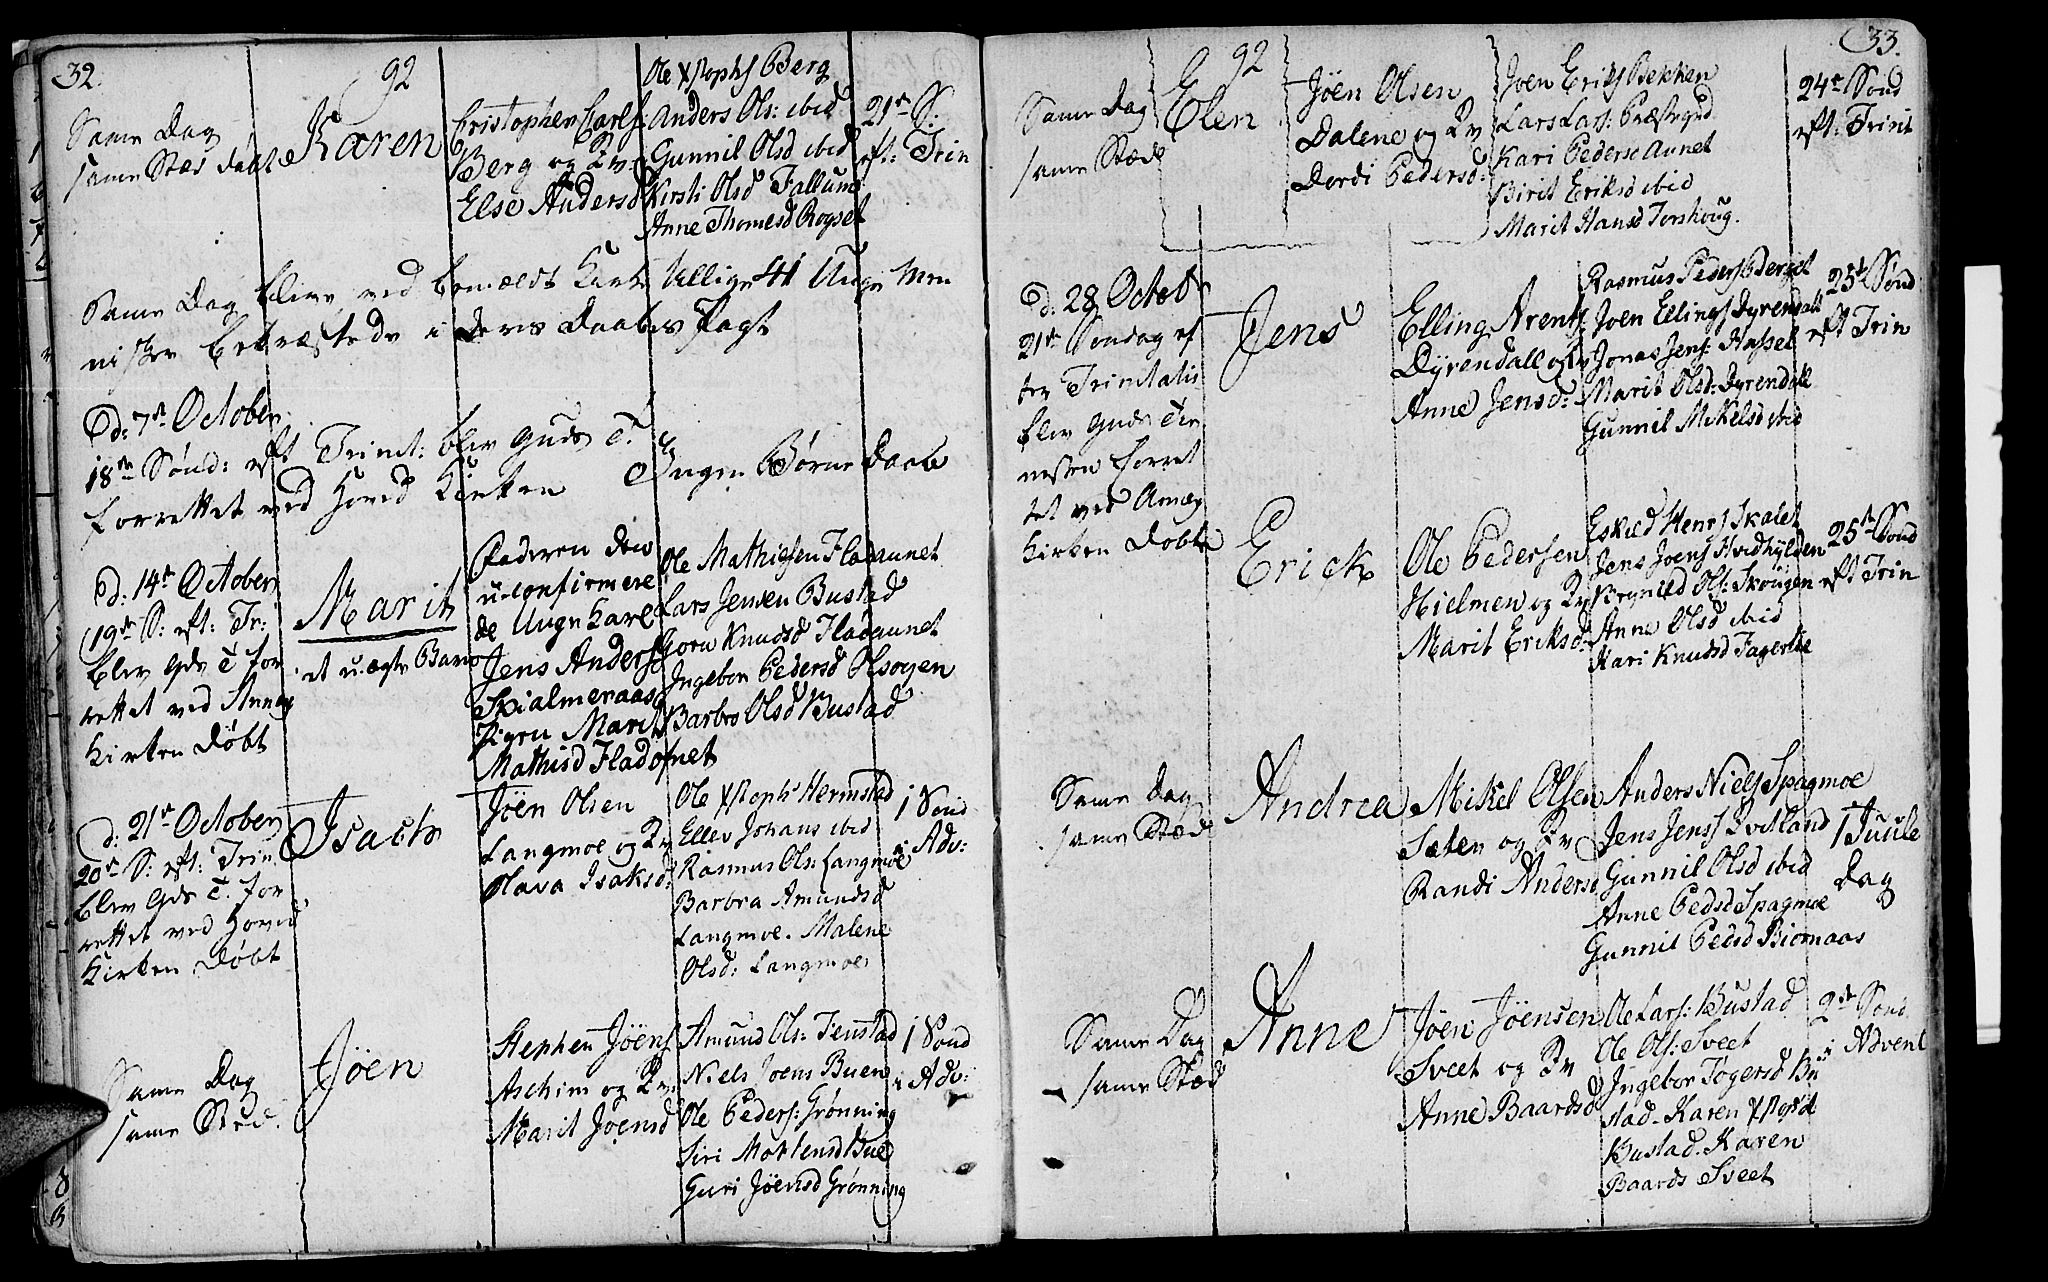 32.
92
Same Dag
same Stæd døbt
Karen
Cristopher Carls:
Berg og Kv
Else Andersd
Ole Xstophs Berg
Anders Ols: ibid
Gunnil Olsd ibid
Kirsti Olsd Fallum
Anne Thomesd Rogset
21de S:
eft: Trin
Same Dag blev ved bemældt Kirke tillige 41 Unge Men
nisker bekræftede i deres Daabes Pagt
d: 7de October
18de Sønd: eft Trinit: blev Guds T.
forrettet ved Hoved Kirken
Ingen Børne Daab
d: 14de October
19de S: eft: Tr:
blev Gds T for
rettet ved Annex
Kirken døbt
Marit
et uægte Barn
Faderen den
u-confirmere
de Unge Karl
Jens Anders
Skialmeraas
Pigen Marit
Mathisd Fladaunet
Ole Mathiesen Fladaunet
Lars Jensen Bustad
Goru Knudsd Fladaunet
Ingebor Pedersd Olsogen
Barbro Olsd Bustad
d: 21de October
20de S: eft: Trin
blev Gds T. for
rettet ved Hoved
Kirken døbt
Isach
Jöen Olsen
Langmoe og Kv
Olava Isaksd:
Ole Xstophs Hermstad
Ellev Johans ibid
Rasmus Ols: Langmoe
Barbra Amundsd
Langmoe. Malene
Olsd: Langmoe
1 Sønd
i Adv:
Same Dag
same Sted.
Jöen
Stephen Jöens
Aschim og Kv
Marit Jöensd
Amund Ols: Tenstad
Niels Joens Buen
Ole Peders: Grønning
Siri Mortensd Bue
Guri Jöensd Grønning
1 Sønd
i Adv:
33.
92
Same Dag
same Stæde
Elen
Jöen Olsen
Dalene og Kv
Dordi Pedersd:
Joen Eriks Bekken
Lars Lars: Præstegrd
Kari Pederse Aunet
Birit Eriksd ibid
Marit Hansd Torshoug.
24de Sønd
eft: Trinit
d: 28 Octob
21de Søndag ef
ter Trinitatis
blev Guds Tie
nesten forret
tet ved Annex
Kirken døbt
Jens
Elling Arents:
Dyrendall og Kv
Anne Jensd:
Rasmus Peders Berget
Joen Ellings Dyrendall
Jonas Jens: Hassel
Marit Olsd: Dyrendall
Gunnil Mikelsd ibid
25de Sønd
eft Trin
Erick
Ole Pedersen
Hielmen og Kv
Marit Eriksd:
Eskild Henr: Skalet
Jens Joens Hvidhylden
Brynild Ols: Skougen
Anne Olsd ibid
Kari Knudsd Fagerlie
25de Sønd
eft Trin
Same Dag
same Stæd
Andrea
Mikel Olsen
Sæter og Kv
Randi Andersd
Anders Niels Spagmoe
Jens Jens Svitland
Gunnil Olsd ibid
Anne Pedsd Spagmoe
Gunnil Pedsd Biornaas
1 Juule
Dag
Same Dag
same Stæd
Anne
Jöen Jöensen
Sveet og Kv
Anne Baardsd
Ole Lars: Bustad
Ole Ols: Sveet
Ingebor Togersd Bu
stad. Karen Xstopsd
Bustad. Karen
Baards Sveet
2de Sønd
i Advent